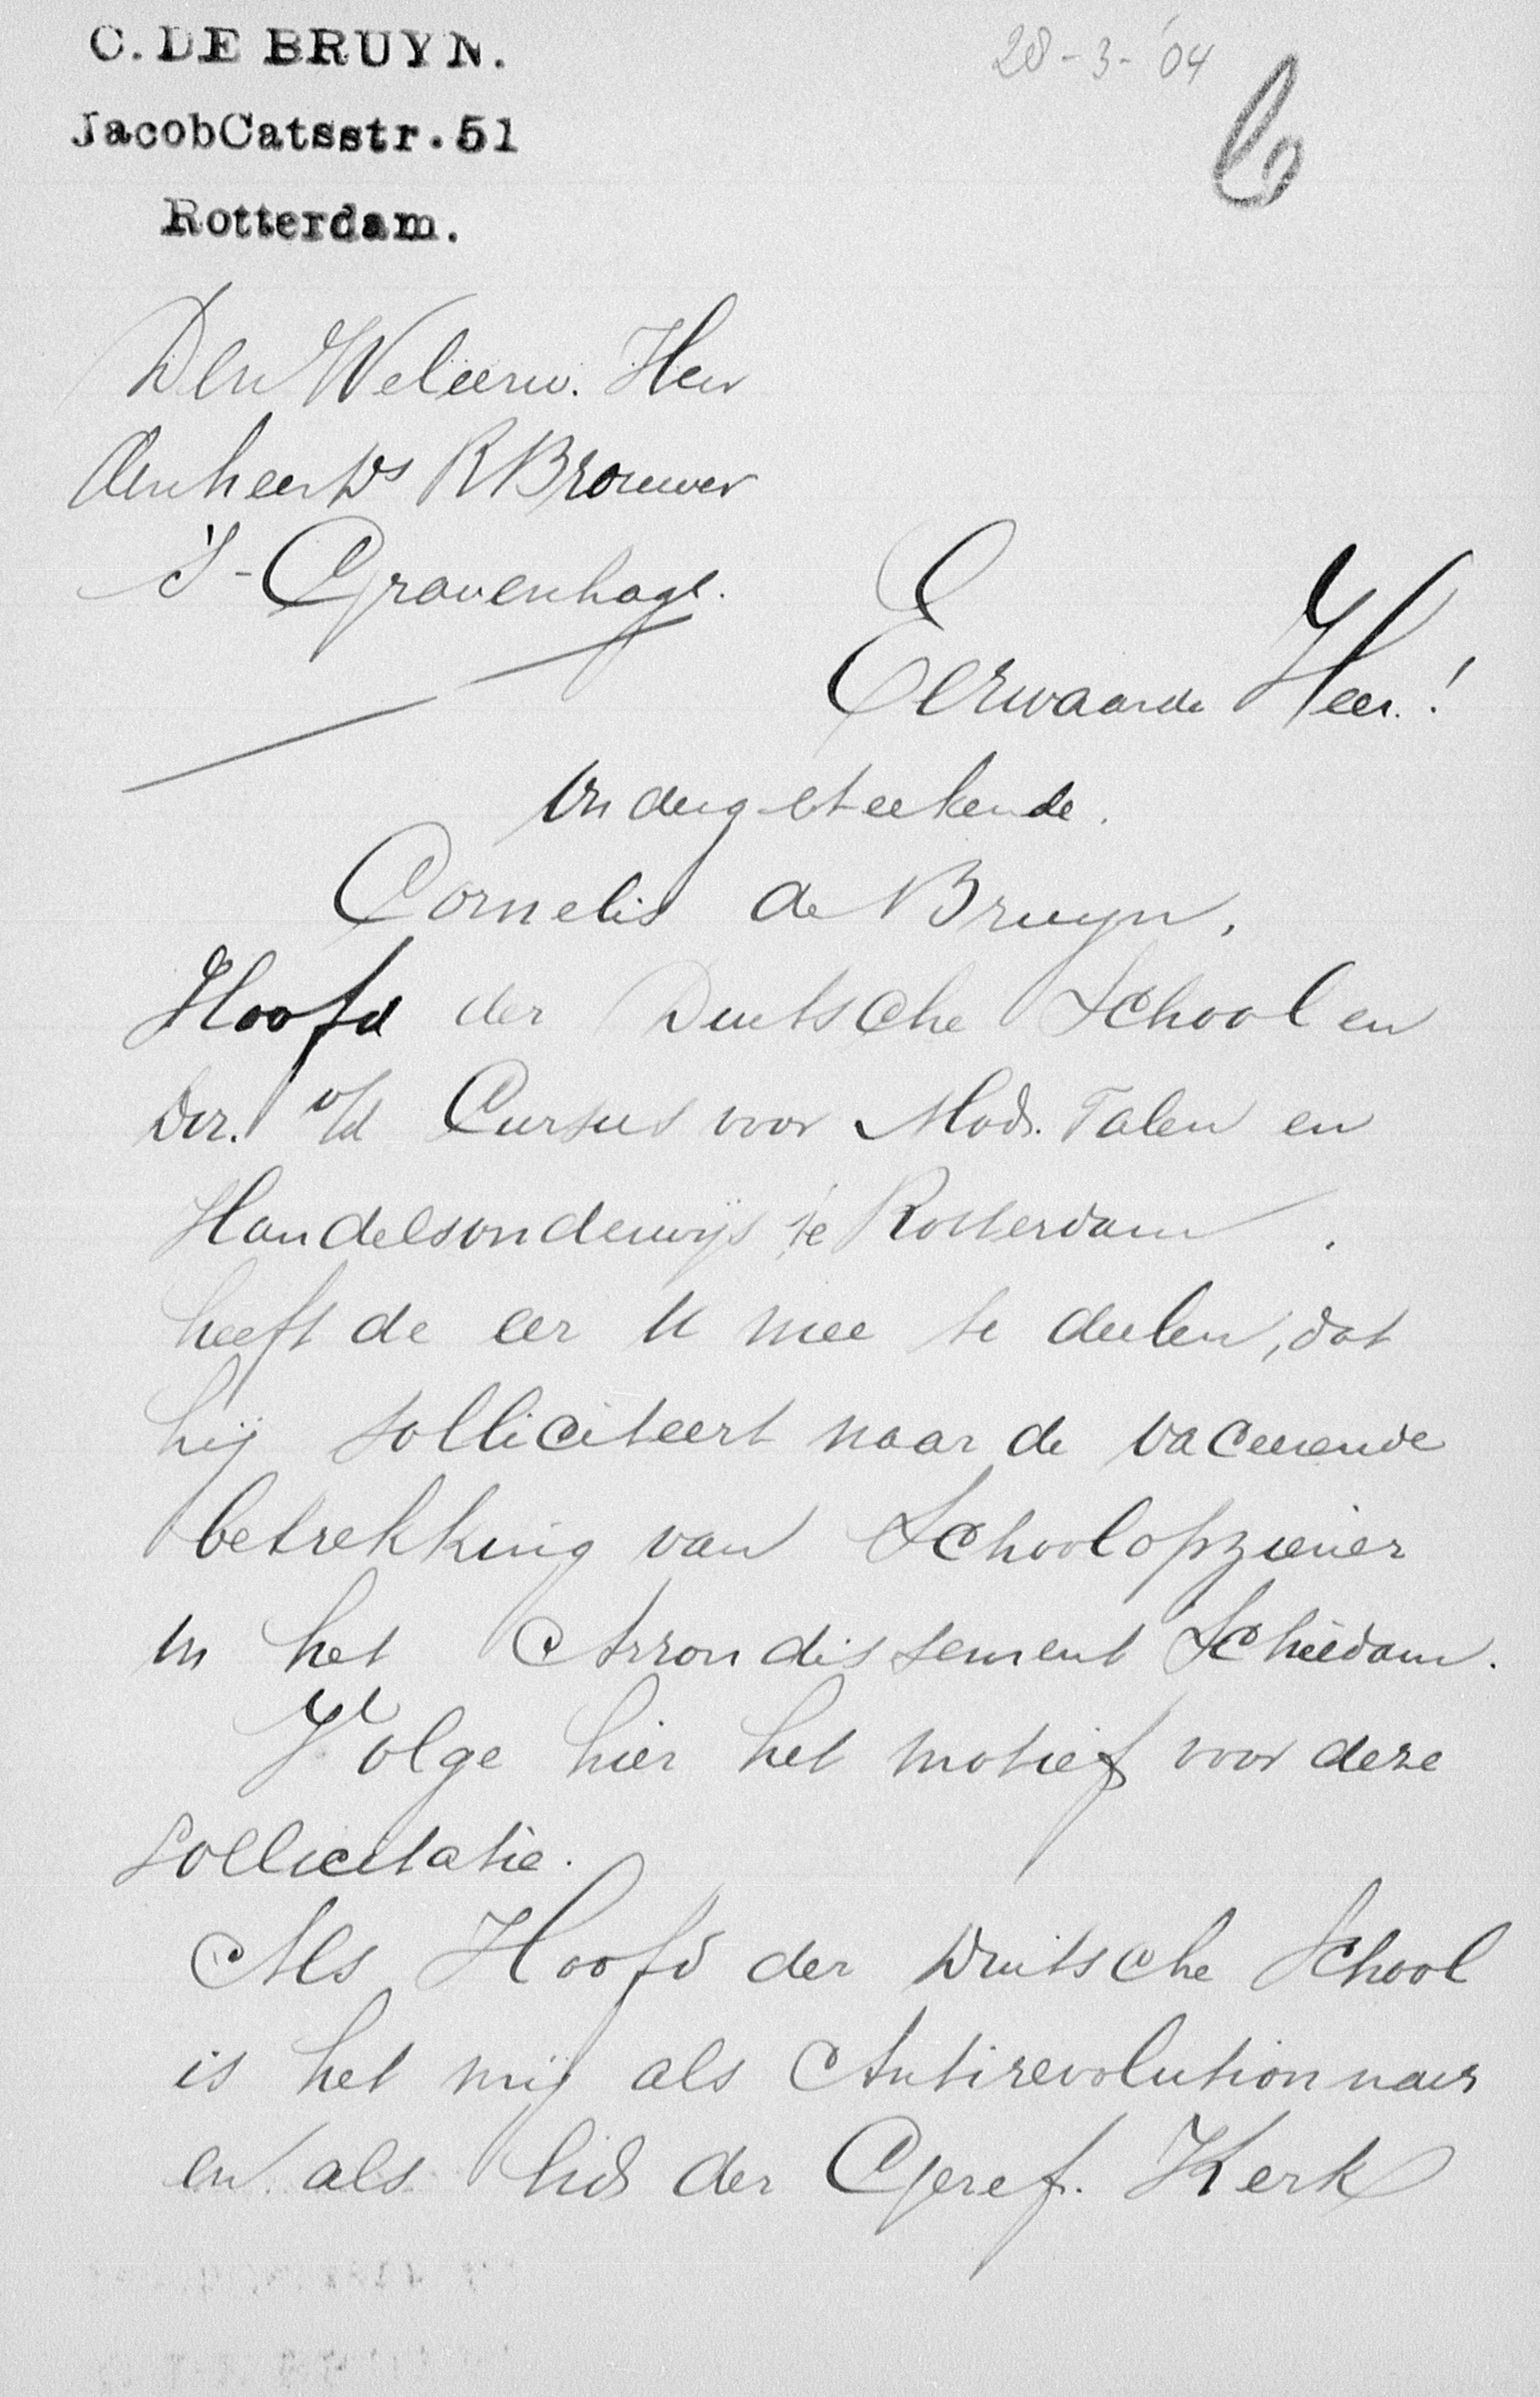 C. DE BRUYN.
28-3-'04
JacobCatsstr. 51
Rotterdam.
Den Weleerw. Heer
den heer Ds R Brouwer
's-Gravenhage.
Eerwaarde Heer!
Ondergeteekende.
Cornelis de Bruyn,
Hoofd der Duitsche School en
Dir. v/d Cursus voor Mod. Talen en
Handelsonderwijs te Rotterdam.
heeft de eer U mee te deelen, dat
hij solliciteert naar de vaceerende
betrekking van Schoolopziener
in het Arrondissement Schiedam.
Volge hier het motief voor deze
sollicitatie.
Als Hoofd der Duitsche School
is het mij als Antirevolutionnair
en als lid der Geref. Kerk